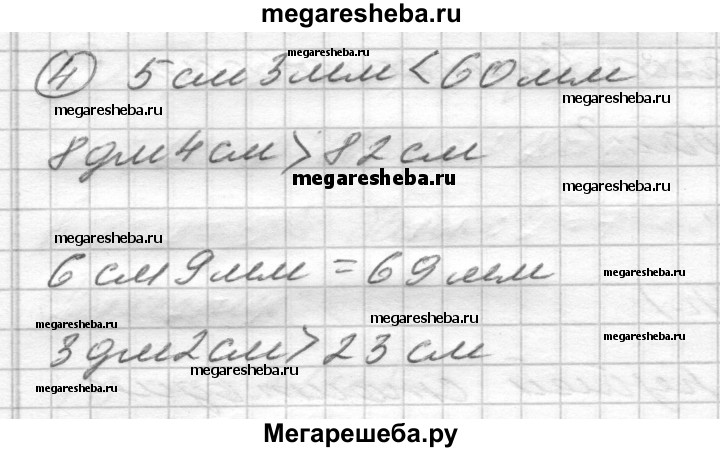 megaresheba.ru
megaresheba.ru
4 5 см 3 мм < 60 мм
megaresheba.ru megaresheba.ru
8 дм 4 см > 82 см
megaresheba.ru
megaresheba.ru
6 см 9 мм = 69 мм
megaresheba.ru
megaresheba.ru
megaresheba.ru megaresheba.ru
3 дм 2 см > 23 см
megaresheba.ru
megaresheba.ru
Мегарешеба.ру